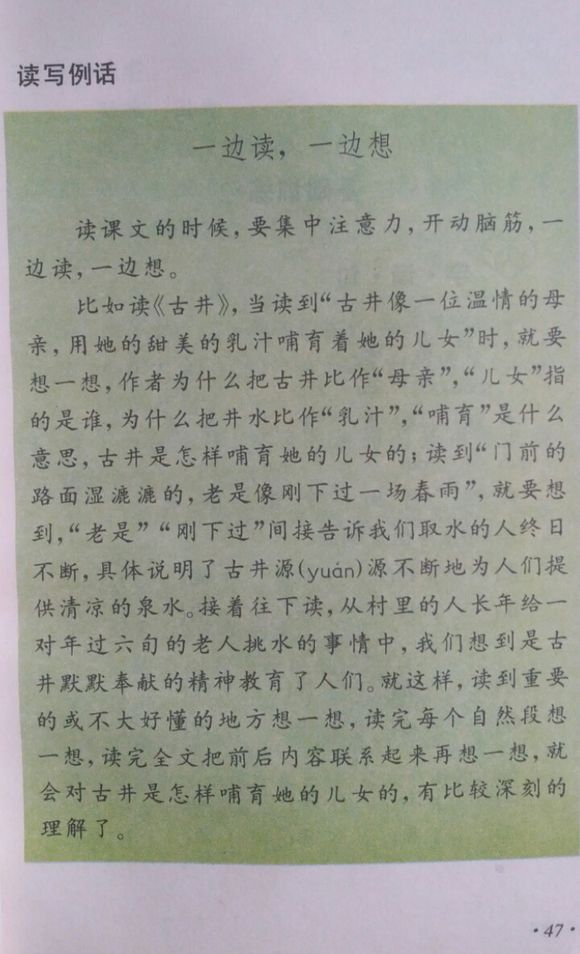 读写例话
一边读，一边想
读课文的时候，要集中注意力，开动脑筋，一
边读，一边想。
比如读《古井》，当读到“古井像一位温情的母
亲，用她的甜美的乳汁哺育着她的儿女”时，就要
想一想，作者为什么把古井比作“母亲”，“儿女”指
的是谁，为什么把井水比作“乳汁”，“哺育”是什么
意思，古井是怎样哺育她的儿女的；读到“门前的
路面湿漉漉的，老是像刚下过一场春雨”，就要想
到，“老是”“刚下过”间接告诉我们取水的人终日
不断，具体说明了古井源(yuán)源不断地为人们提
供清凉的泉水。接着往下读，从村里的人长年给一
对年过六旬的老人挑水的事情中，我们想到是古
井默默奉献的精神教育了人们。就这样，读到重要
的或不大好懂的地方想一想，读完每个自然段想
一想，读完全文把前后内容联系起来再想一想，就
会对古井是怎样哺育她的儿女的，有比较深刻的
理解了。
·47·